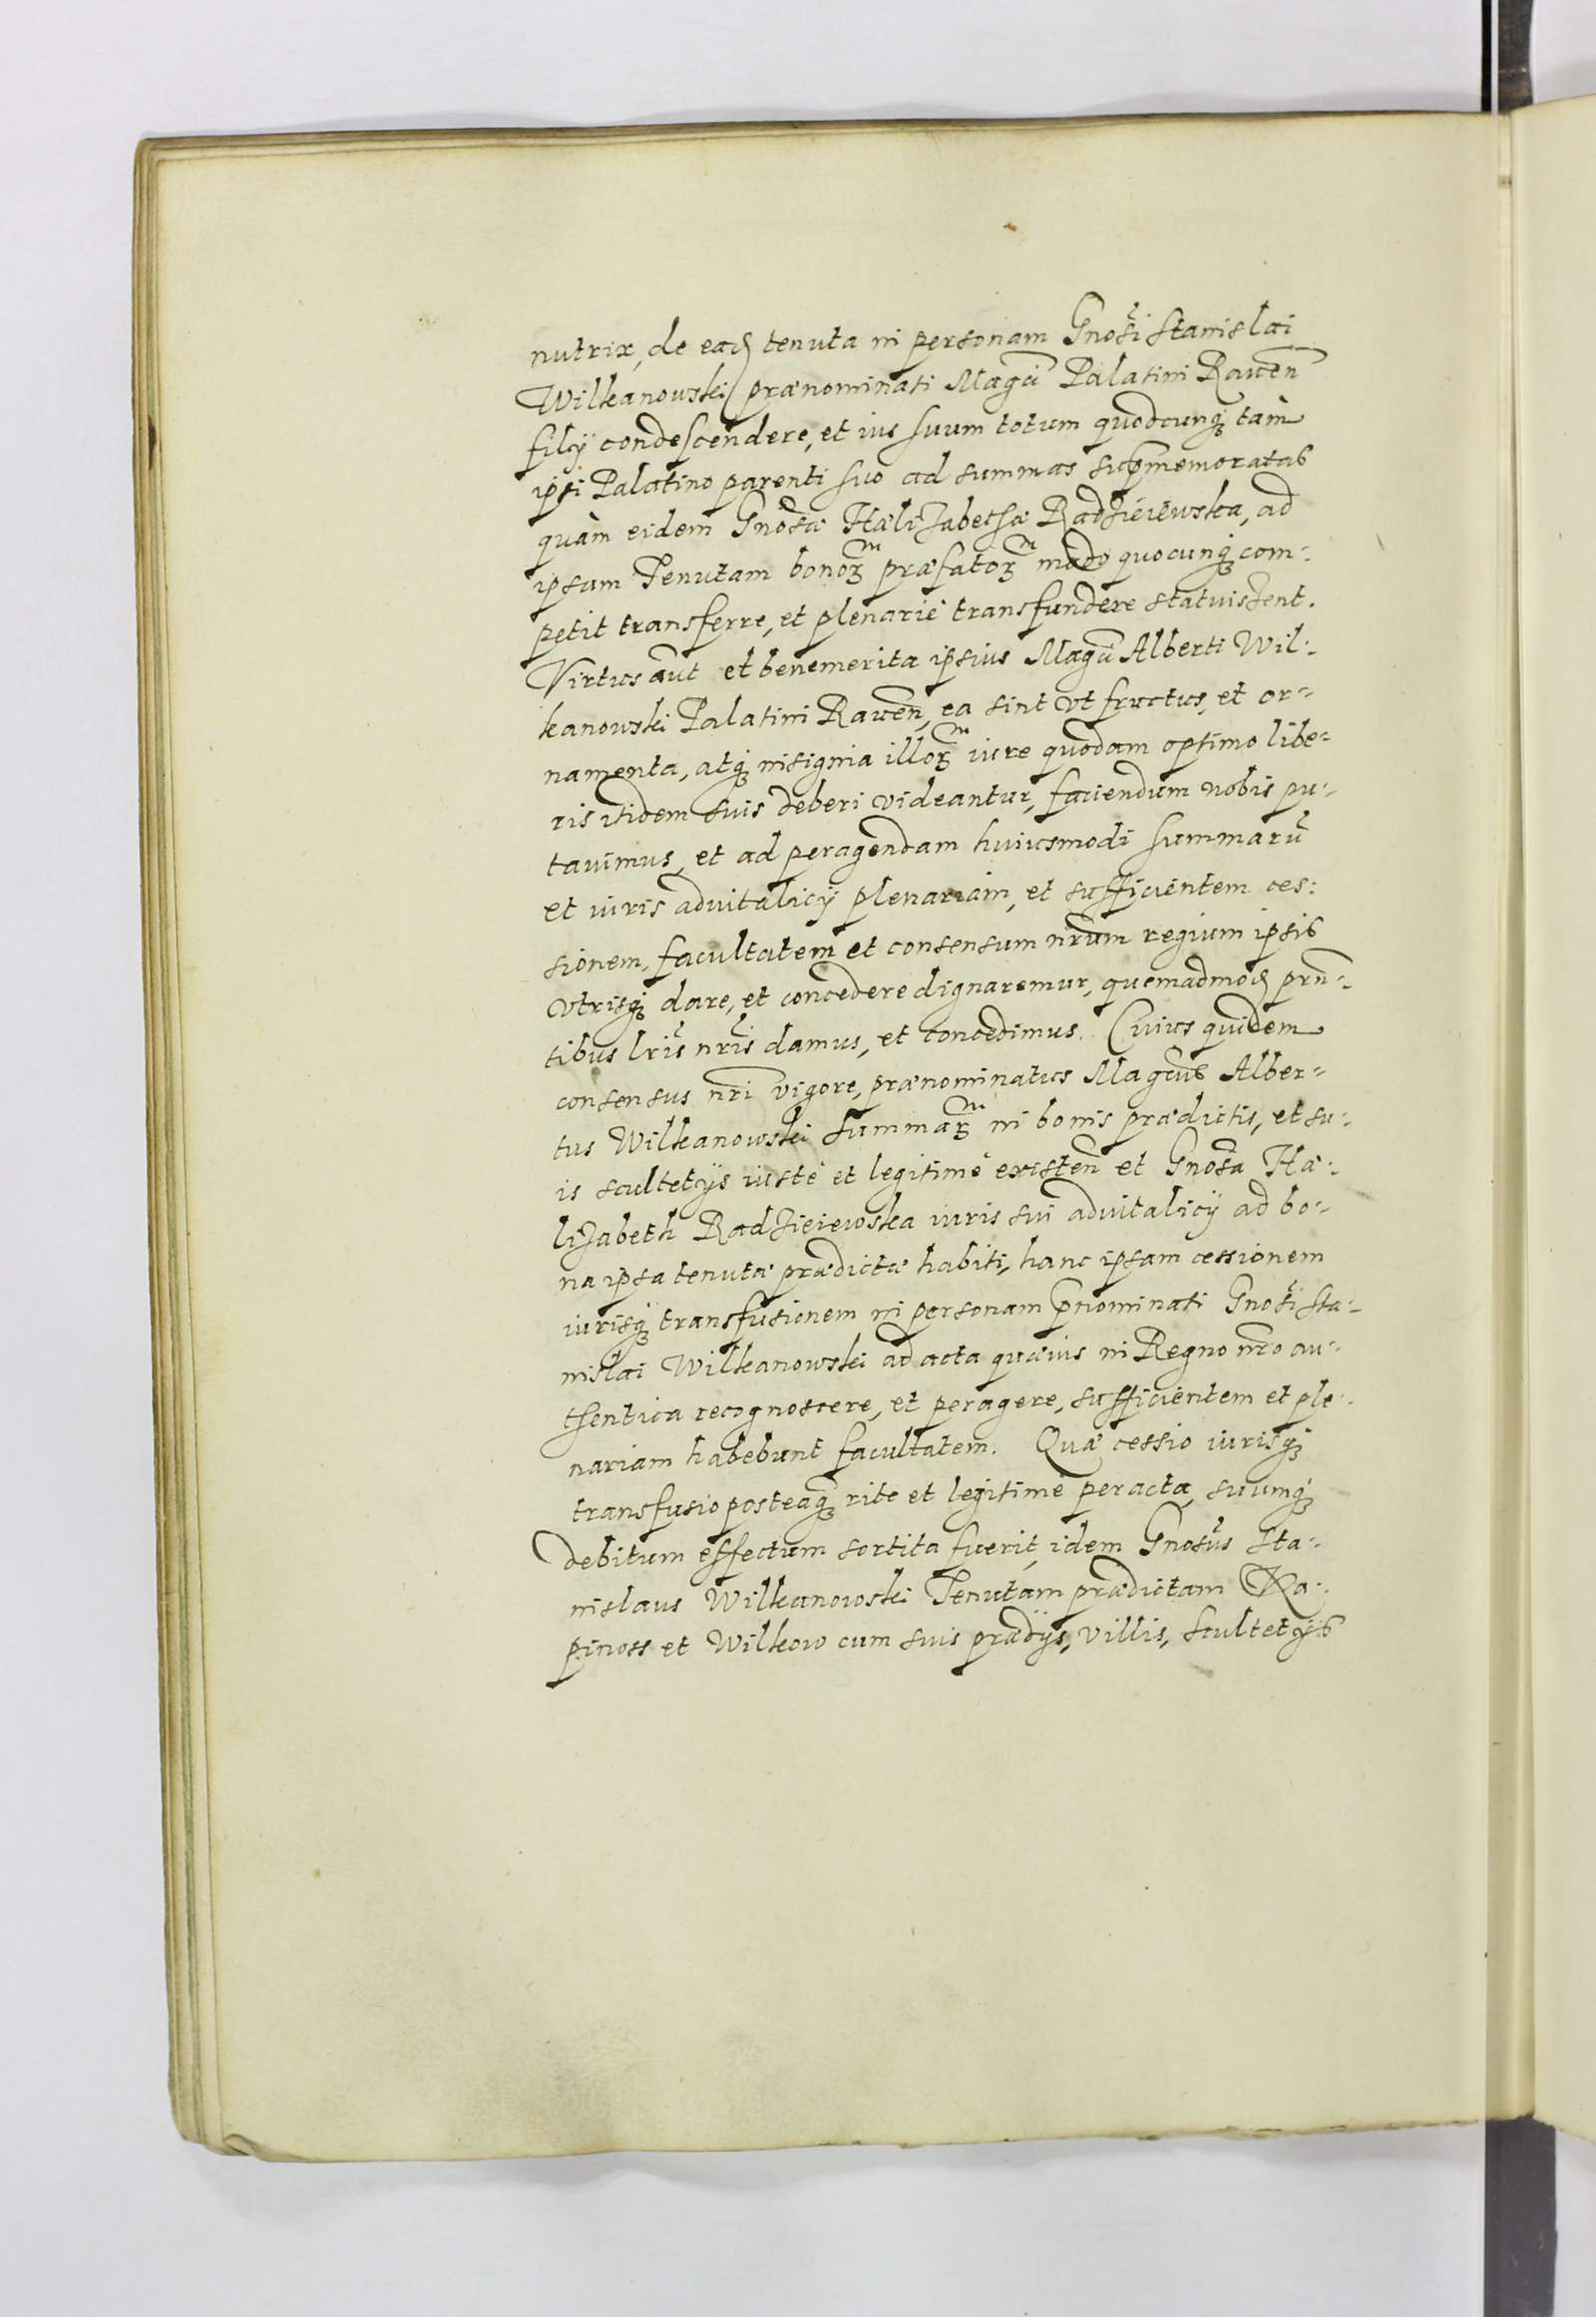 nutrix, de eadꝫ tenuta in personam Gnosi Stanislai
Wilkanowski prænominati Magci Palatini Rawen̄
filÿ condescendere, et ius suum totum quodcunqꝫ tàm
ipsi Palatino parenti suo ad summas supmemoratas
quàm eidem Gnosæ Hælizabethæ Radzieiewska, ad
ipsam Tenutam bonorꝫ præfatorꝫ modo quocunqꝫ com:
petit transferre, et plenariè transfundere statuissent.
Virtus aut̄ et benemerita ipsius Magci Alberti Wil:
kanowski Palatini Rawen̄, ea sint vt fructus, et or:
namenta, atqꝫ insignia illorꝫ iure quodam optimo libe:
ris itidem suis deberi videantur, faciendum nobis pu:
tavimus, et ad peragendam huiusmodi summarū
et iuris advitalicÿ plenariam, et sufficientem ces:
sionem, facultatem et consensum nrum regium ipsis
vtrisqꝫ dare, et concedere dignaremur, quemadmodꝫ prn̄:
tibus lris nris damus, et concedimus. Cuius quidem
consensus nri vigore, prænominatus Magcus Alber:
tus Wilkanowski summarꝫ in bonis prædictis, et su:
is scultetÿs iustè et legitimè existen̄ et Gnosa Hæ:
lizabeth Radzieiewska iuris sui advitalicÿ ad bo:
na ipsa tenutæ prædictæ habiti, hanc ipsam cessionem
iurisqꝫ transfusionem in personam pnominati Gnosi Sta:
nislai Wilkanowski ad acta quævis in Regno nro au:
thentica recognoscere, et peragere, sufficientem et ple:
nariam habebunt facultatem. Quæ cessio iurisqꝫ
transfusio posteaqꝫ rite et legitimè peracta, suumqꝫ
debitum effectum sortita fuerit, idem Gnosus Sta:
nislaus Wilkanowski Tenutam prædictam Ka:
pinoss et Wilkow cum suis prædÿs, villis, scultetÿs